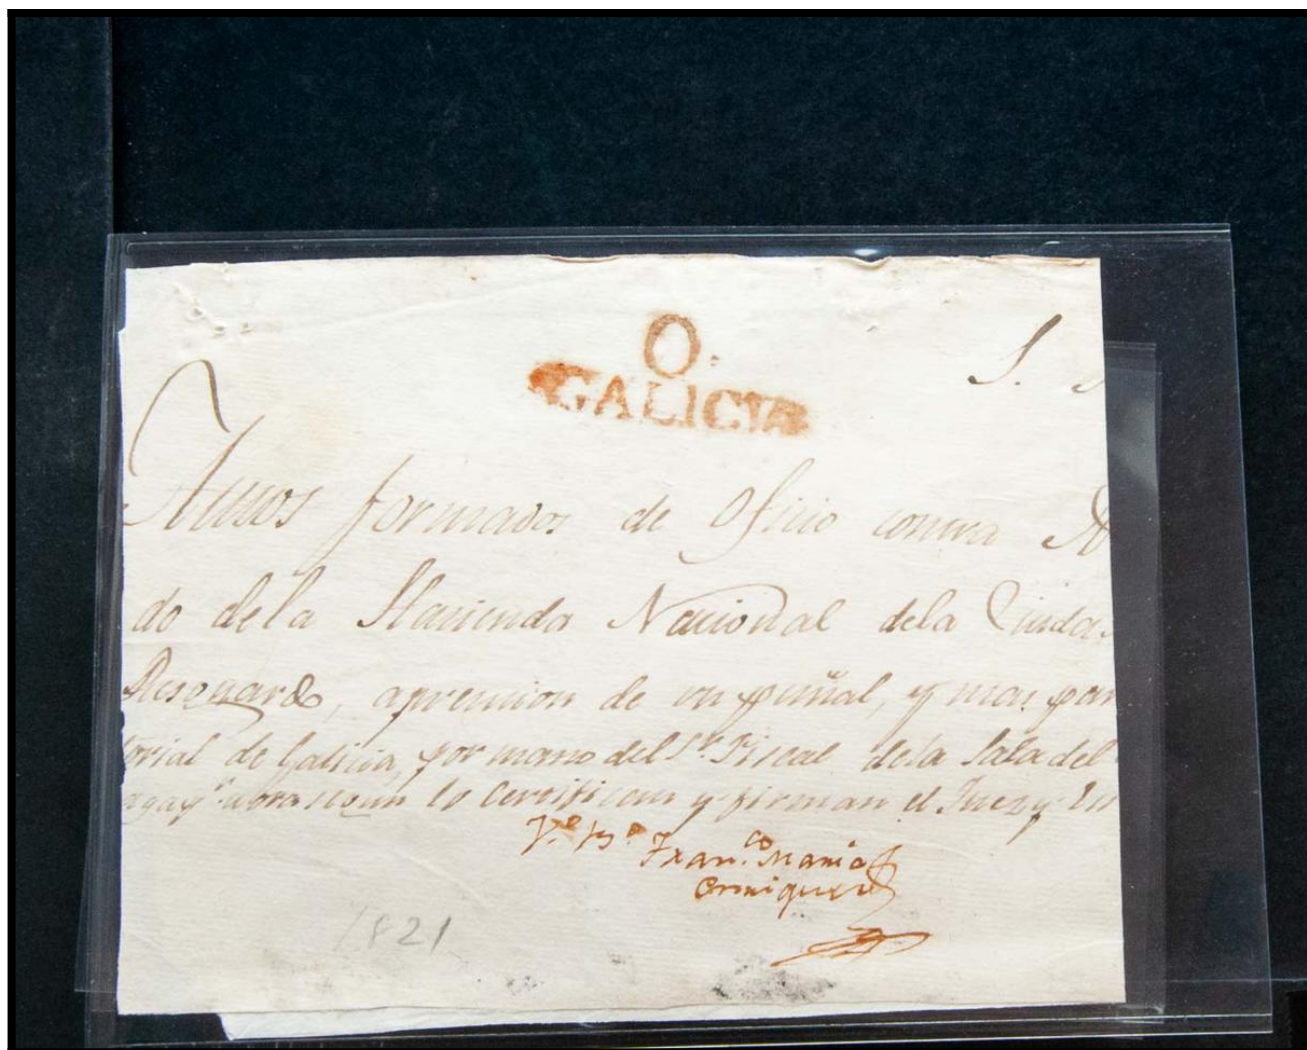 O.
GALICIA
S.
Autos formados de Oficio contra
do dela Hacienda Nacional dela Ciudad
Resguardo, aprension de un puñal, y mas par
torial de Galicia, por mano del Sr. Fiscal dela Sala del
segun lo certifican y firman el Juez y Es
Vº. Bº.
Fran.co Maria
1821